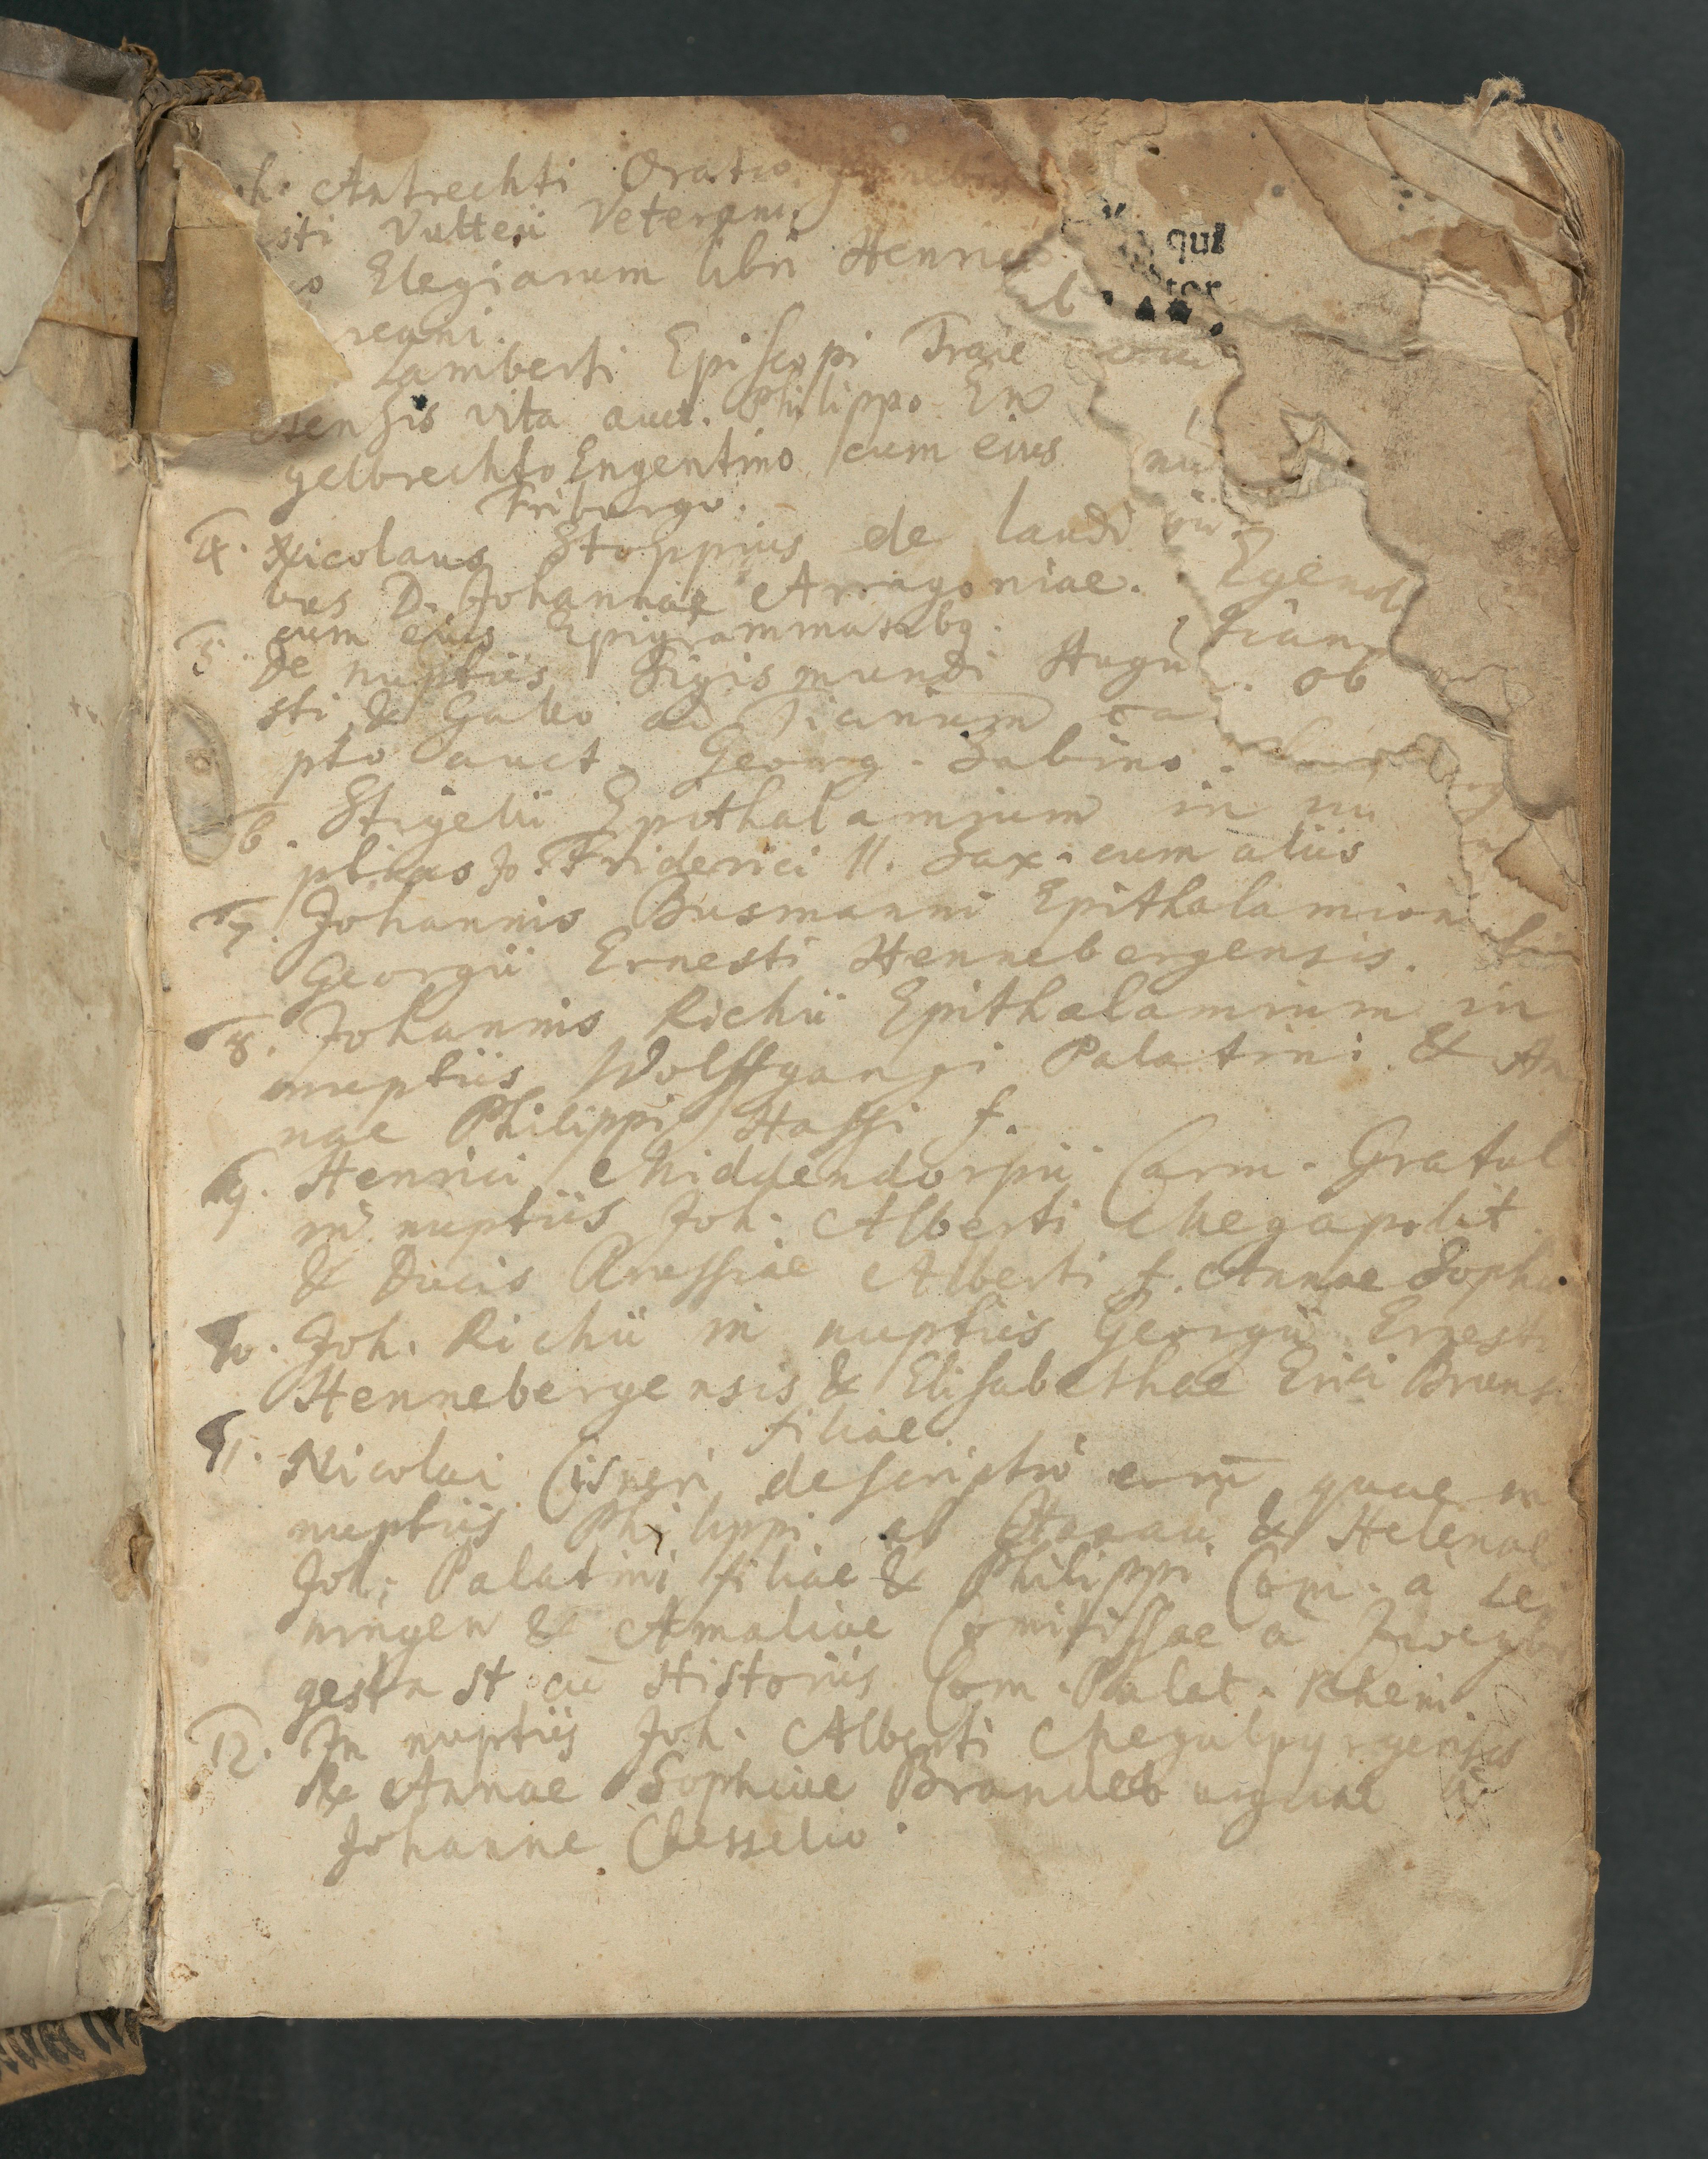 h. Antrechti Oratio funebris
sti Vulteii Veterani
Elegiarum libri Henrici
reani.
Lamberti Episcopi Traie
ctensis vita auct. Philippo En
gelbrechto Engentino cum eius
Friburgo.
4. Nicolaus Stoppius de laudi
bus D. Johannae Arragoniae.
cum eius Epigrammatibq.
5. De nuptiis Sigismundi Augu
sti & Gallo ad Ticinum ca
pto auct. Georg. Sabino.
6. Stigelii Epithalamium in nu
ptias Jo. Friderici II. Sax. cum aliis
7. Johannis Busmanni Epithalamion
Georgii Ernesti Hennebergensis.
8. Johannis Richii Epithalamium in
nuptiis Wolffgangi Palatini & An
nae Philippi Hassi f.
9. Henrici Middendorpii Carm. Gratul
in nuptiis Joh. Alberti Megapolit.
& Ducis Prussiae Alberti f. Annae Sophi
10. Joh. Richii in nuptiis Georgii Ernesti
Hennebergensis & Elisabethae Erici Bruns
filiae
11. Nicolai Cisneri descriptio eorū quae in
nuptiis Philippi ab Hanau & Helenae
Joh. Palatini filiae & Philippi Com. a Lei
ningen & Amaliae Comitissae a Zweybr
gesta st cū Historiis Com. Palat. Rheni.
12. In nuptiis Joh. Alberti Megalpyrgensis
& Annae Sophiae Brandeburgicae a
Johanne Chesselio.
qui
tor
nu
Egenol
ob